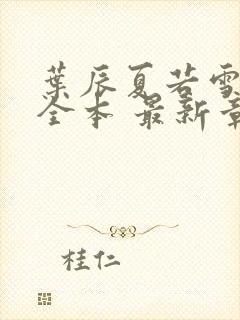 葉辰夏若雪
全本 最新章
桂仁